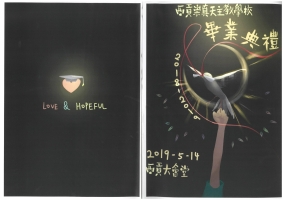 LOVE & HOPEFUL
西貢崇真天主教學校
畢業典禮
2018-2019
2019-5-14
西貢大會堂